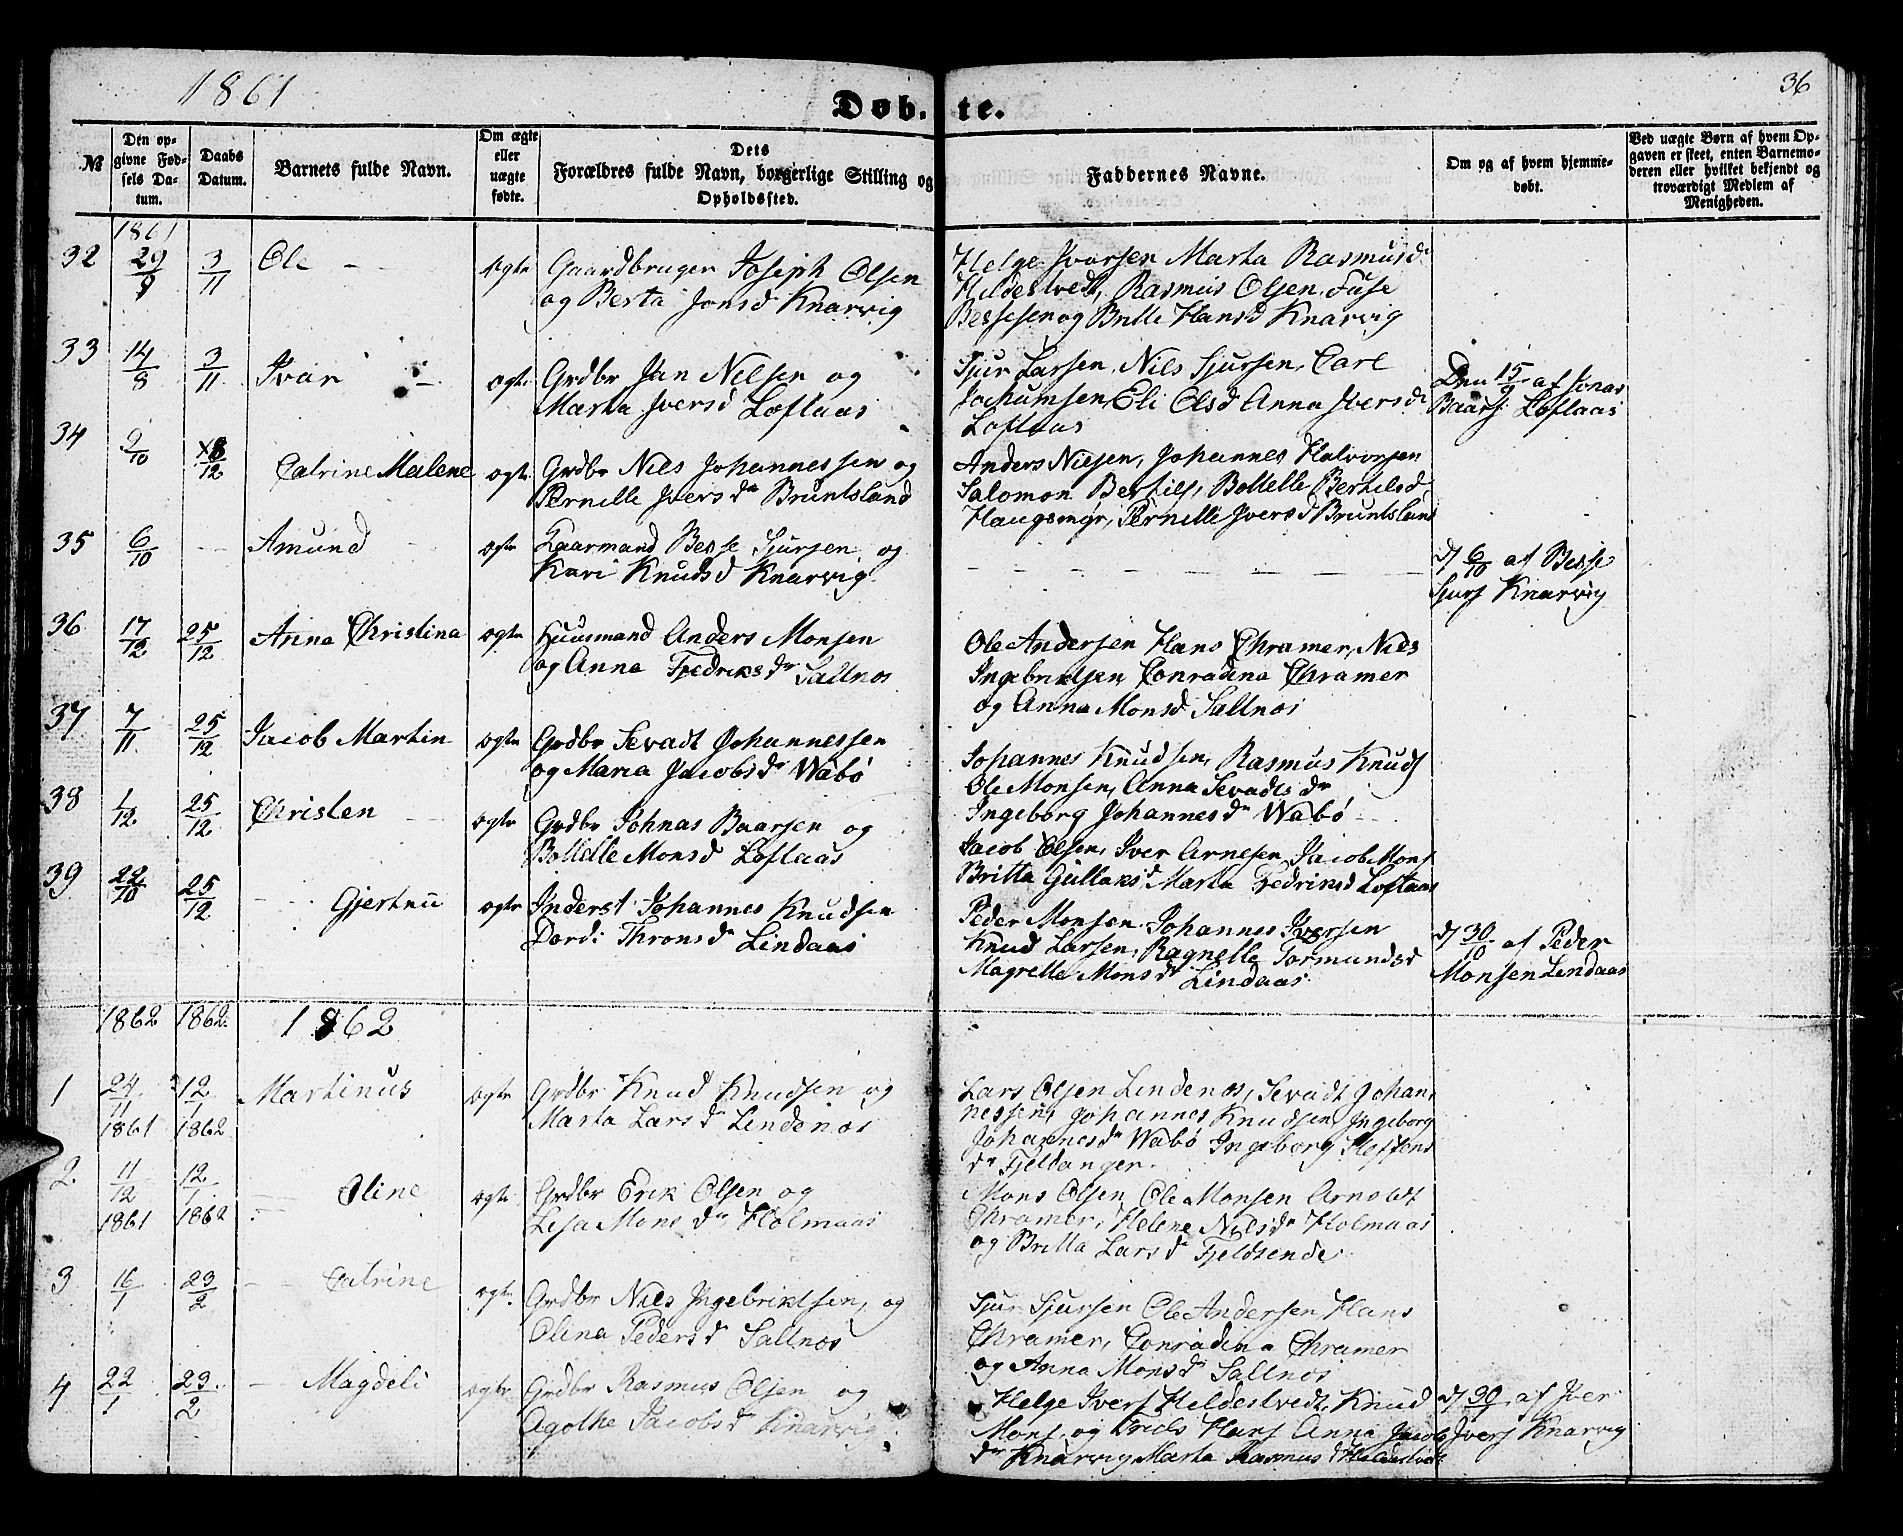 1861
Døb. te.
36
№
Den op-
givne Fød-
sels Da-
tum.
Daabs
Datum.
Barnets fulde Navn.
Om ægte
eller
uægte
fødte.
Dets
Forældres fulde Navn, borgerlige Stilling og
Opholdssted.
Faddernes Navne.
Om og af hvem hjemme-
døbt.
Ved uægte Børn af hvem Op-
gaven er skeet, enten Barnemo-
deren eller hvilket bekjendt og
troværdigt Medlem af
Menigheden.
1861
32 29/9 3/11 Ole ægte Gaardbruger Joseph Olsen
og Berta Jonsd Knarvig
Helge Iversen Marta Rasmusd
Hildestvedt, Rasmus Olsen Fuse
Bessesen og Britte Hansd Knarvig
33 14/8 3/11 Ivar ægte Grdbr Jan Nilsen og
Marta Iversd Loftaas
Sjur Larsen, Nils Sjursen, Carl
Jochumsen, Eli Olsd Anna Iversd
Loftaas
Den 15/9 af Jonas
Baars Loftaas
34 9/10 8/12 Catrine Malene ægte Grdbr Nils Johannessen og
Pernille Iversdr Bruntsland
Anders Nilsen, Johannes Halvorsen
Salomon Bertils, Botlelle Bertilsd
Haugsmyr, Pernille Iversd Bruntsland
35 6/10 - - Amund ægte Kaarmand Besse Sjursen og
Kari Knudsd Knarvig
d 6/10 af Besse
Sjurs Knarvig
36 17/12 25/12 Anna Christina ægte Huusmand Anders Monsen
og Anna Fredriksdr Saltnos
Ole Andersen Hans Chramer, Nils
Ingebrictsen Conradina Chramer
og Anna Monsd Saltnos
37 7/11 25/12 Jacob Martin ægte Grdbr Sevadt Johannessen
og Maria Jacobsdr Wabø
Johannes Knudsen, Rasmus Knuds
Ole Monsen, Anna Sevadts dr
Ingeborg Johannesdr Wabø
38 1/12 25/12 Christen ægte Grdbr Johnas Baarsen og
Botlelle Monsd Loftaas
Jacob Olsen, Iver Arnesen Jacob Mons
Britta Gullaksd Marta Fredriksd Loftaas
39 22/10 25/12 - - Gjertru ægte Inderst Johannes Knudsen
Dordi Thronsdr Lindaas
Peder Monsen Johannes Iversen
Knud Larsen, Ragnelle Tormundsd
Magrette Monsdr Lindaas
d 30/10 af Peder
Monsen Lindaas
1862 1862. 1862
1 24/11 1861 12/1 1862 Martinus ægte Grdbr Knud Knudsen og
Marta Larsdr Lindenos
Lars Olsen Lindenos, Sevadt Johan-
nessen, Johannes Knudsen, Ingeborg
Johannesdr Wabø Ingeborg Steffens
dr Fjeldanger.
2. 11/12 1861 12/1 1862 Oline ægte Grdbr Erik Olsen og
Lisa Mons dr Holmaas
Mons Olsen, Ole Monsen Arnoldt
Chramer, Helene Nilsdr Holmaas
og Britta Larsdr Fjeldsende
3 16/1 23/2 - - Catrine ægte Grdbr Nils Ingebriktsen, og
Olina Pedersd Saltnos
Sjur Sjursen Ole Andersen Hans
Chramer, Conradina Chramer
og Anna Monsdr Saltnos
4 22/1 23/2 - Magdeli ægte Grdbr Rasmus Olsen og
Agothe Jacobsdr Knarvig
Helge Ivers Hildestvedt, Knud
Mons og Hans Anna Jacobs
dr Knarvig Marta Rasmusd Hildestvedt
d 30/1 af Iver
Ivers Knarvig